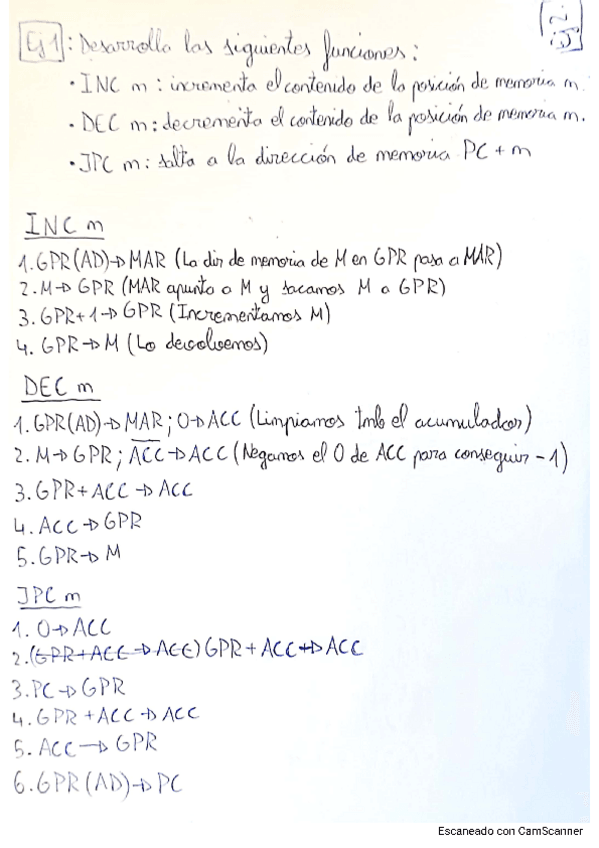 Ej 1: Desarrolla las siguientes funciones:
• INC m: incrementa el contenido de la posición de memoria m.
• DEC m: decrementa el contenido de la posición de memoria m.
• JPC m: salta a la dirección de memoria PC + m
INC m
1. GPR(AD)→MAR (La dir de memoria de M en GPR pasa a MAR)
2. M→ GPR (MAR apunta a M y sacamos M a GPR)
3. GPR+1→ GPR (Incrementamos M)
4. GPR→M (Lo devolvemos)
DEC m
1. GPR(AD)→MAR; 0→ACC (Limpiamos tmb el acumulador)
2. M→GPR; A̅C̅C̅→ACC (Negamos el 0 de ACC para conseguir -1)
3. GPR+ACC→ACC
4. ACC→GPR
5. GPR→M
JPC m
1. 0→ACC
2. (GPR+ACC→ACC) GPR+ACC→ACC
3. PC→GPR
4. GPR+ACC→ACC
5. ACC→GPR
6. GPR(AD)→PC
Escaneado con CamScanner